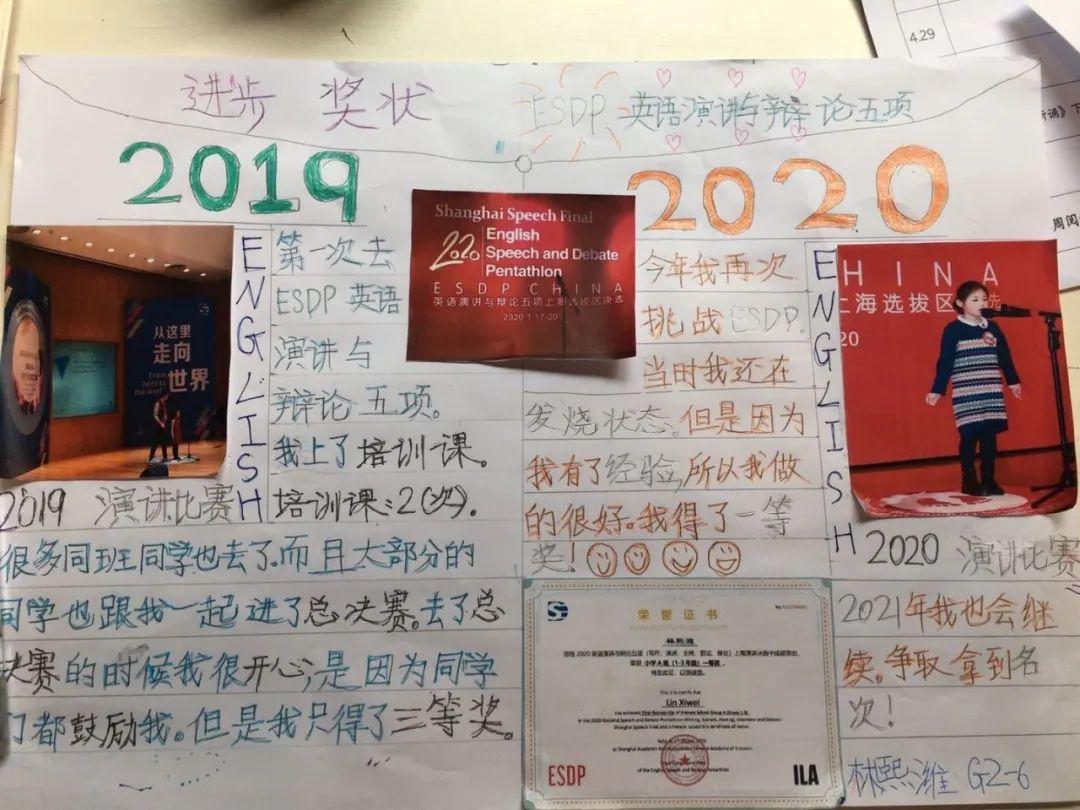 4.29
进步 奖状
ESDP 英语演讲与辩论五项
2019
2020
从这里
走向
世界
From
here to
the world
ENGLISH
第一次去
ESDP 英语
演讲与
辩论五项。
我上了培训课。
培训课:2(次).
2019 演讲比赛
很多同班同学也去了.而且大部分的
同学也跟我一起进了总决赛。去了总
决赛的时候我很开心,是因为同学
们都鼓励我。但是我只得了三等奖。
Shanghai Speech Final
2020
English
Speech and Debate
Pentathlon
ESDP CHINA
英语演讲与辩论五项上海选拔区决选
2020.1.17-20
今年我再次
挑战ESDP.
当时我还在
发烧状态。但是因为
我有了经验,所以我做
的很好。我得了一等
奖!
ENGLISH
HINA
上海选拔区 选
20
2020 演讲比赛
2021年我也会继
续。争取拿到名
次!
林熙潍 G2-6
荣誉证书
林熙潍
荣获 小学A组(1-3年级)一等奖
特发此证,以资鼓励。
This is to certify that
Lin Xiwei
ESDP
ILA
周阅